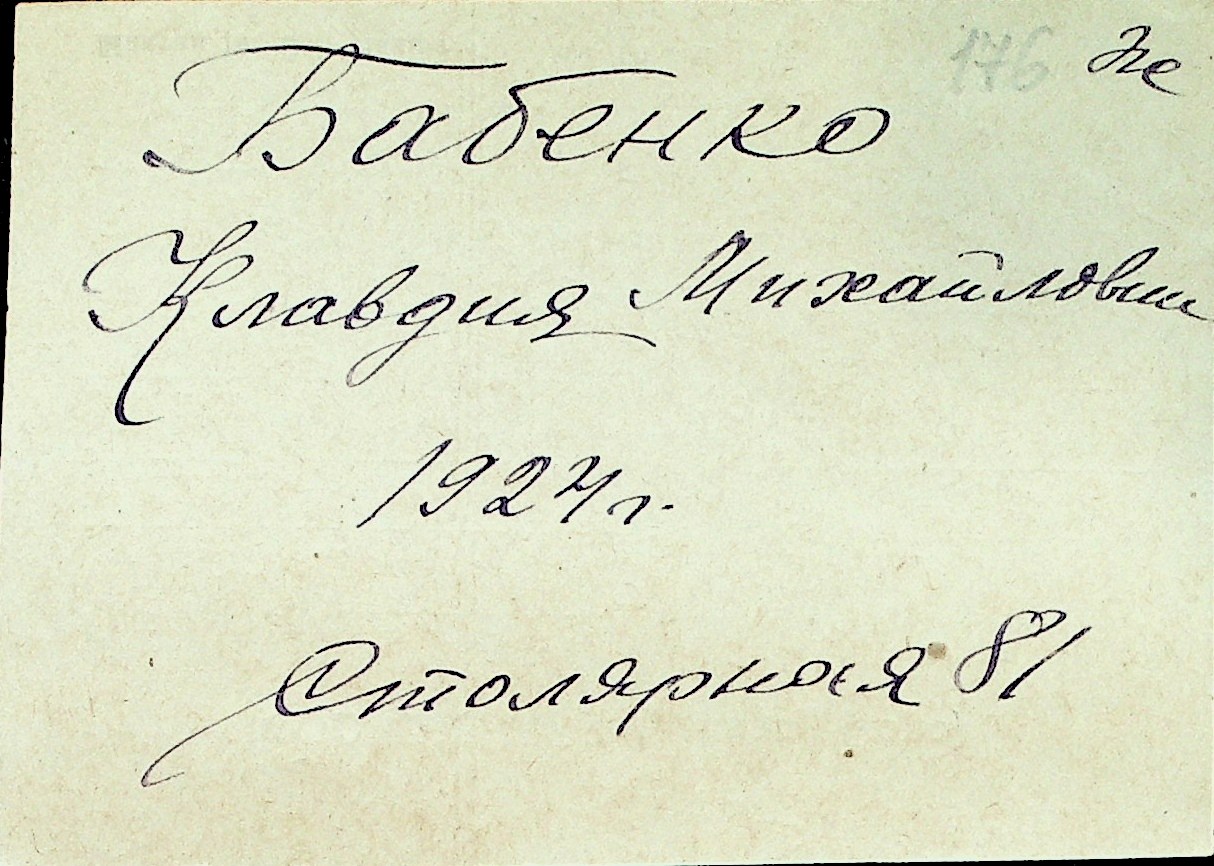 176 Не
Бабенко
Клавдия Михайловн
1924 г.
Столярная 81